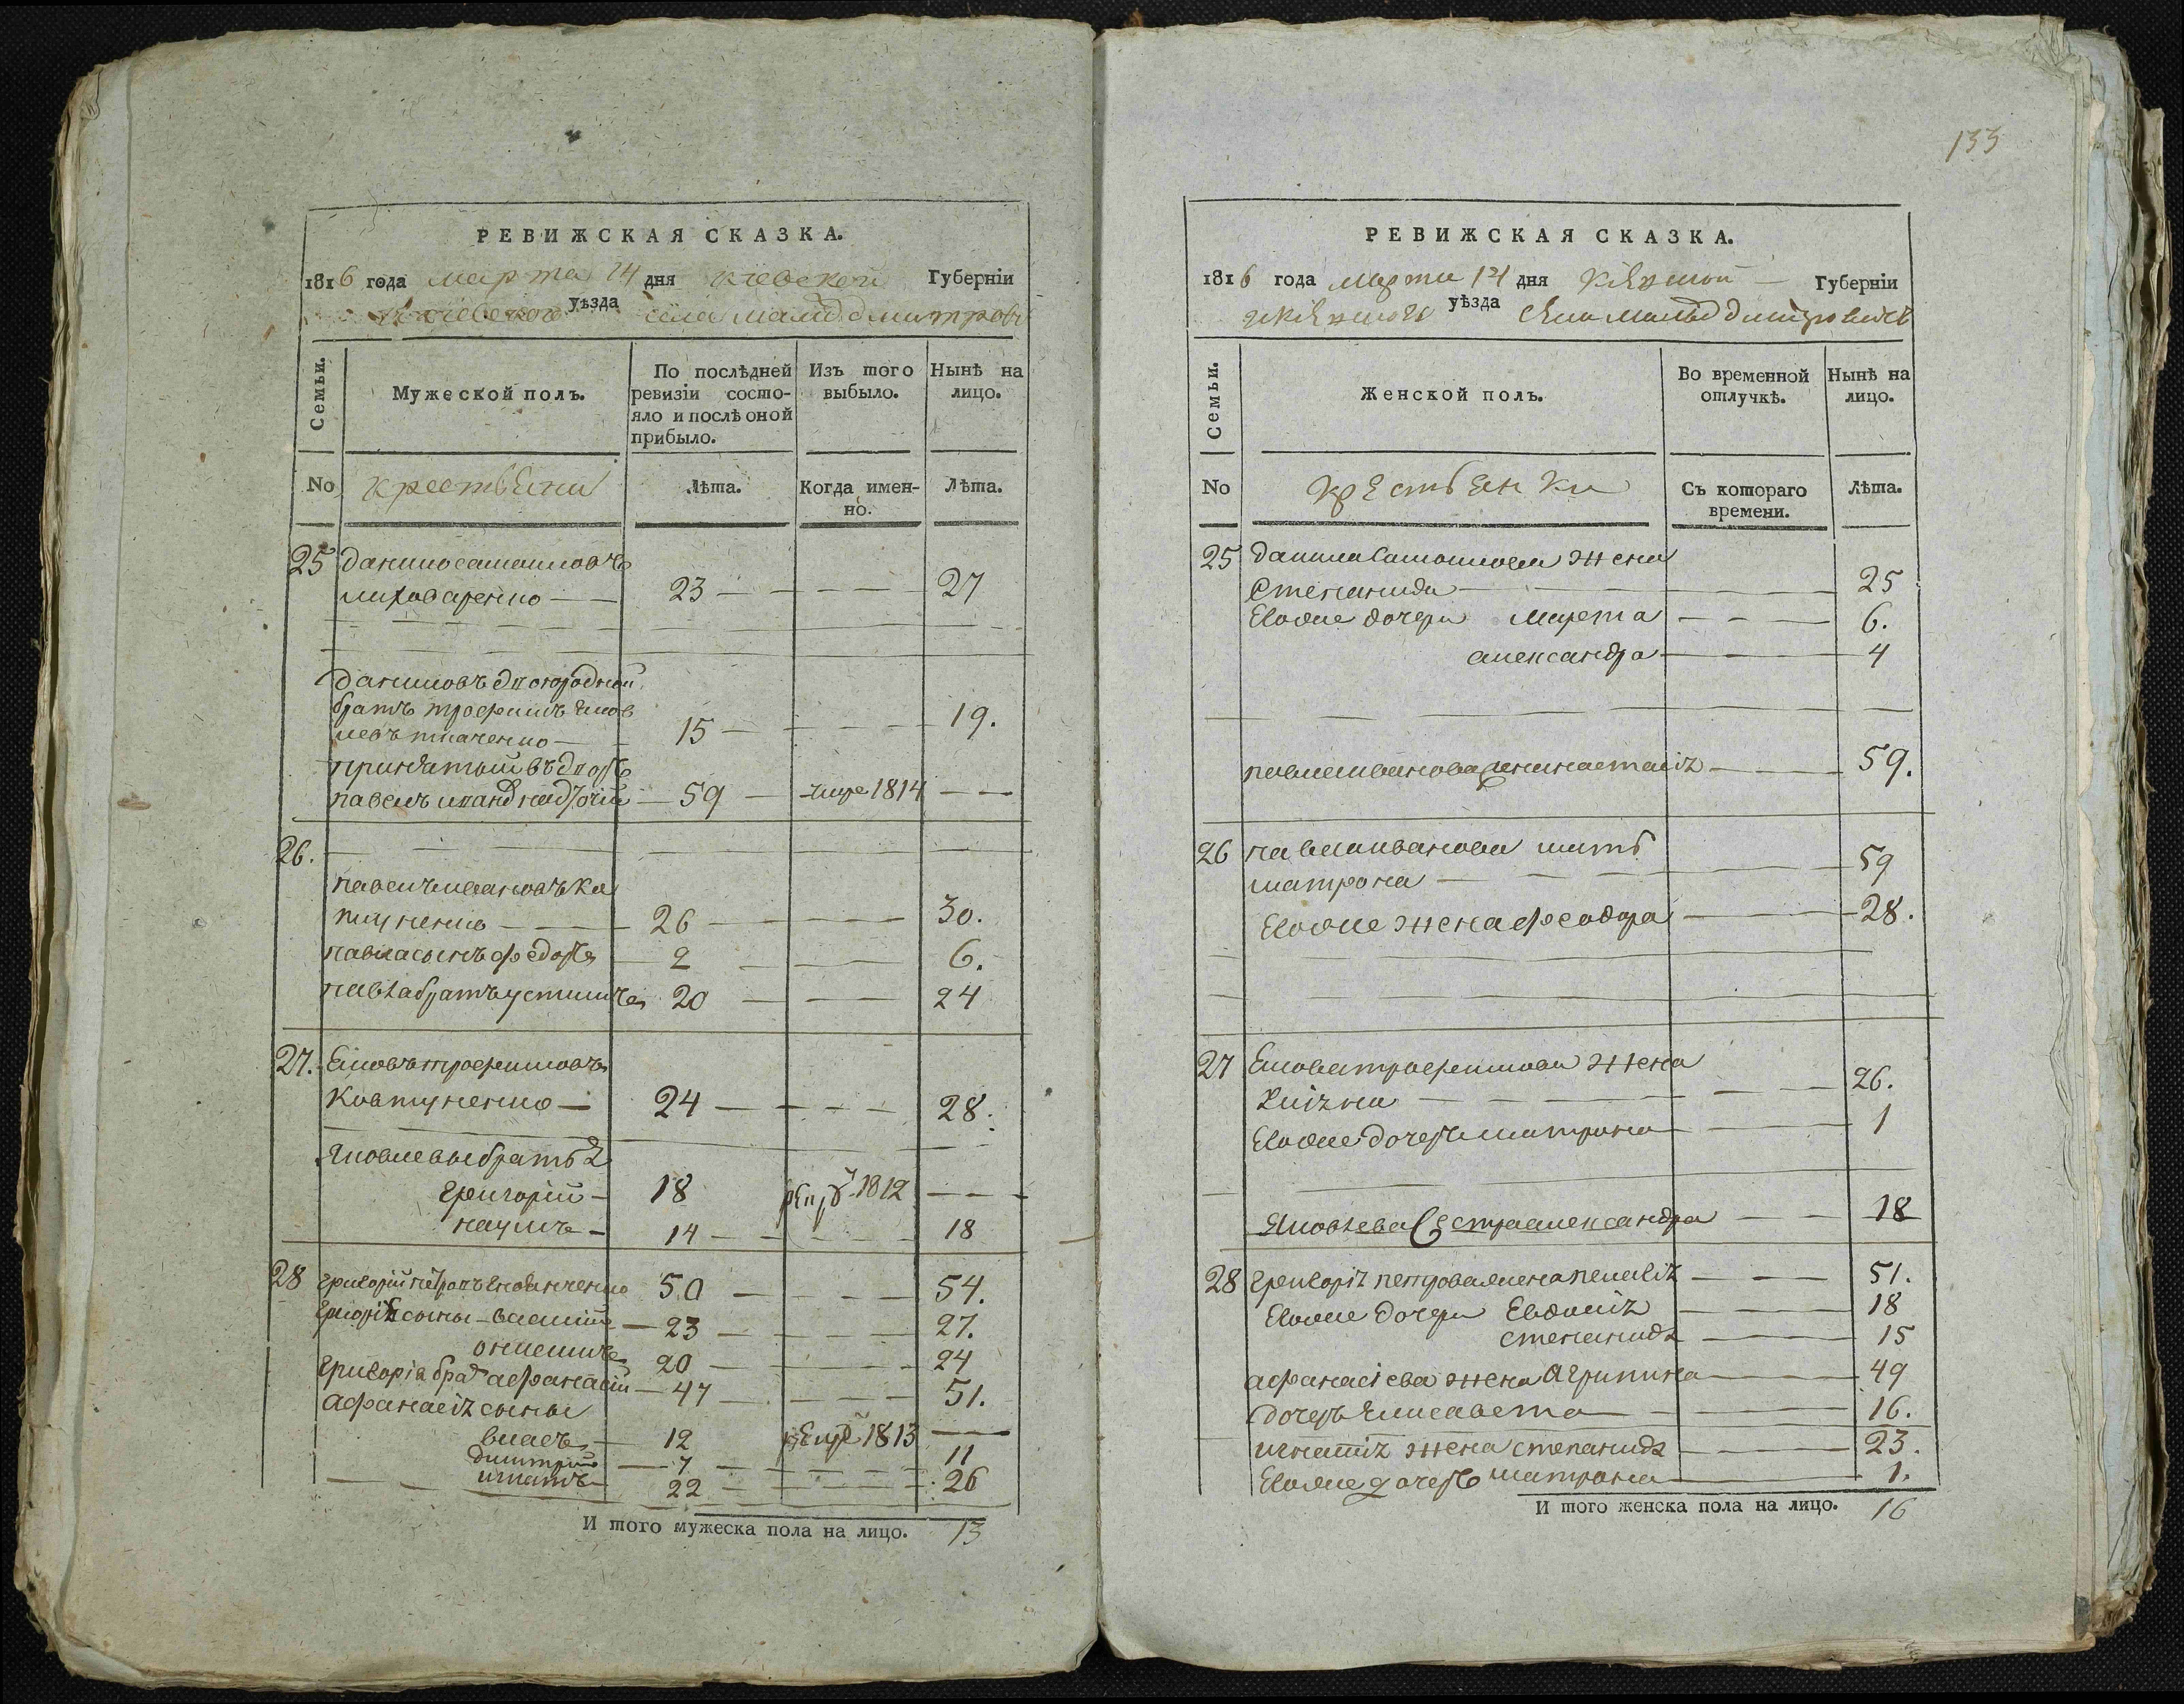 РЕВИЖСКАЯ СКАЗКА.
1816 года марта 14 дня киевской Губерніи
киевского уѣзда села малой дмитров
Семьи.
Мужеской полъ.
По послѣдней ревизіи состояло и послѣ оной прибыло.
Изъ того выбыло.
Нынѣ на лицо.
No
крестьяни
Лѣта.
Когда именно.
Лѣта.
25 данило самоиловъ
23 27
даниловъ двоюродной
братъ трофимъ яков
левъ ткаченко 15 19.
принятый въ дворъ
павелъ 59 умре 1814
26.
павелъ ивановъ ка
26 30.
павла сынъ федоръ 2 6.
павла братъ устимъ 20 24
27. яковъ трофимовъ
ковтуненко 24 28.
яковлевы братья
григорий 18 1812
наумъ 14 18
28 григорий петровъ 50 54.
григорія сыны василий 23 27.
20 24
григорія брат афанасий 47 51.
афанасія сыны
власъ 12 1813
дмитрий 7 11
игнатъ 22 26
И того мужеска пола на лицо. 13
133
РЕВИЖСКАЯ СКАЗКА.
1816 года марта 14 дня киевской Губерніи
киевского уѣзда села малой дмитровки
Семьи.
Женской полъ.
Во временной отлучкѣ.
Нынѣ на лицо.
No
крестьянки
Съ котораго времени.
Лѣта.
25 данила самоилова жена
степанида 25
Его же дочери марфа 6.
александра 4
павла иванова жена настасія 59.
26 павла иванова мать
матрона 59
Его же жена феодора 28.
27 якова трофимова жена
26.
Его же дочерь матрона 1
яковлева сестра александра 18
28 григорія петрова жена пелагія 51.
Его же дочери Евдокія 18
степанида 15
афанасіева жена агрипина 49
дочерь елисавета 16.
игнатія жена степанида 23.
Его же дочерь матрона 1.
И того женска пола на лицо. 16